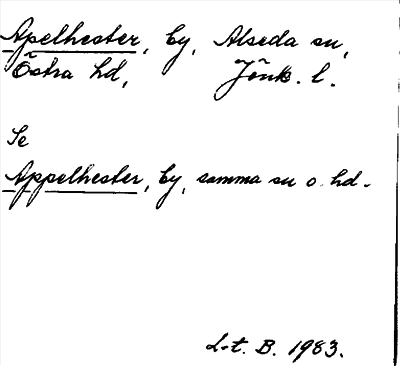 Apelhester, by, Alseda sn,
Östra hd, Jönk. l.
Se
Appelhester, by, samma sn o. hd.
L-t. B. 1983.